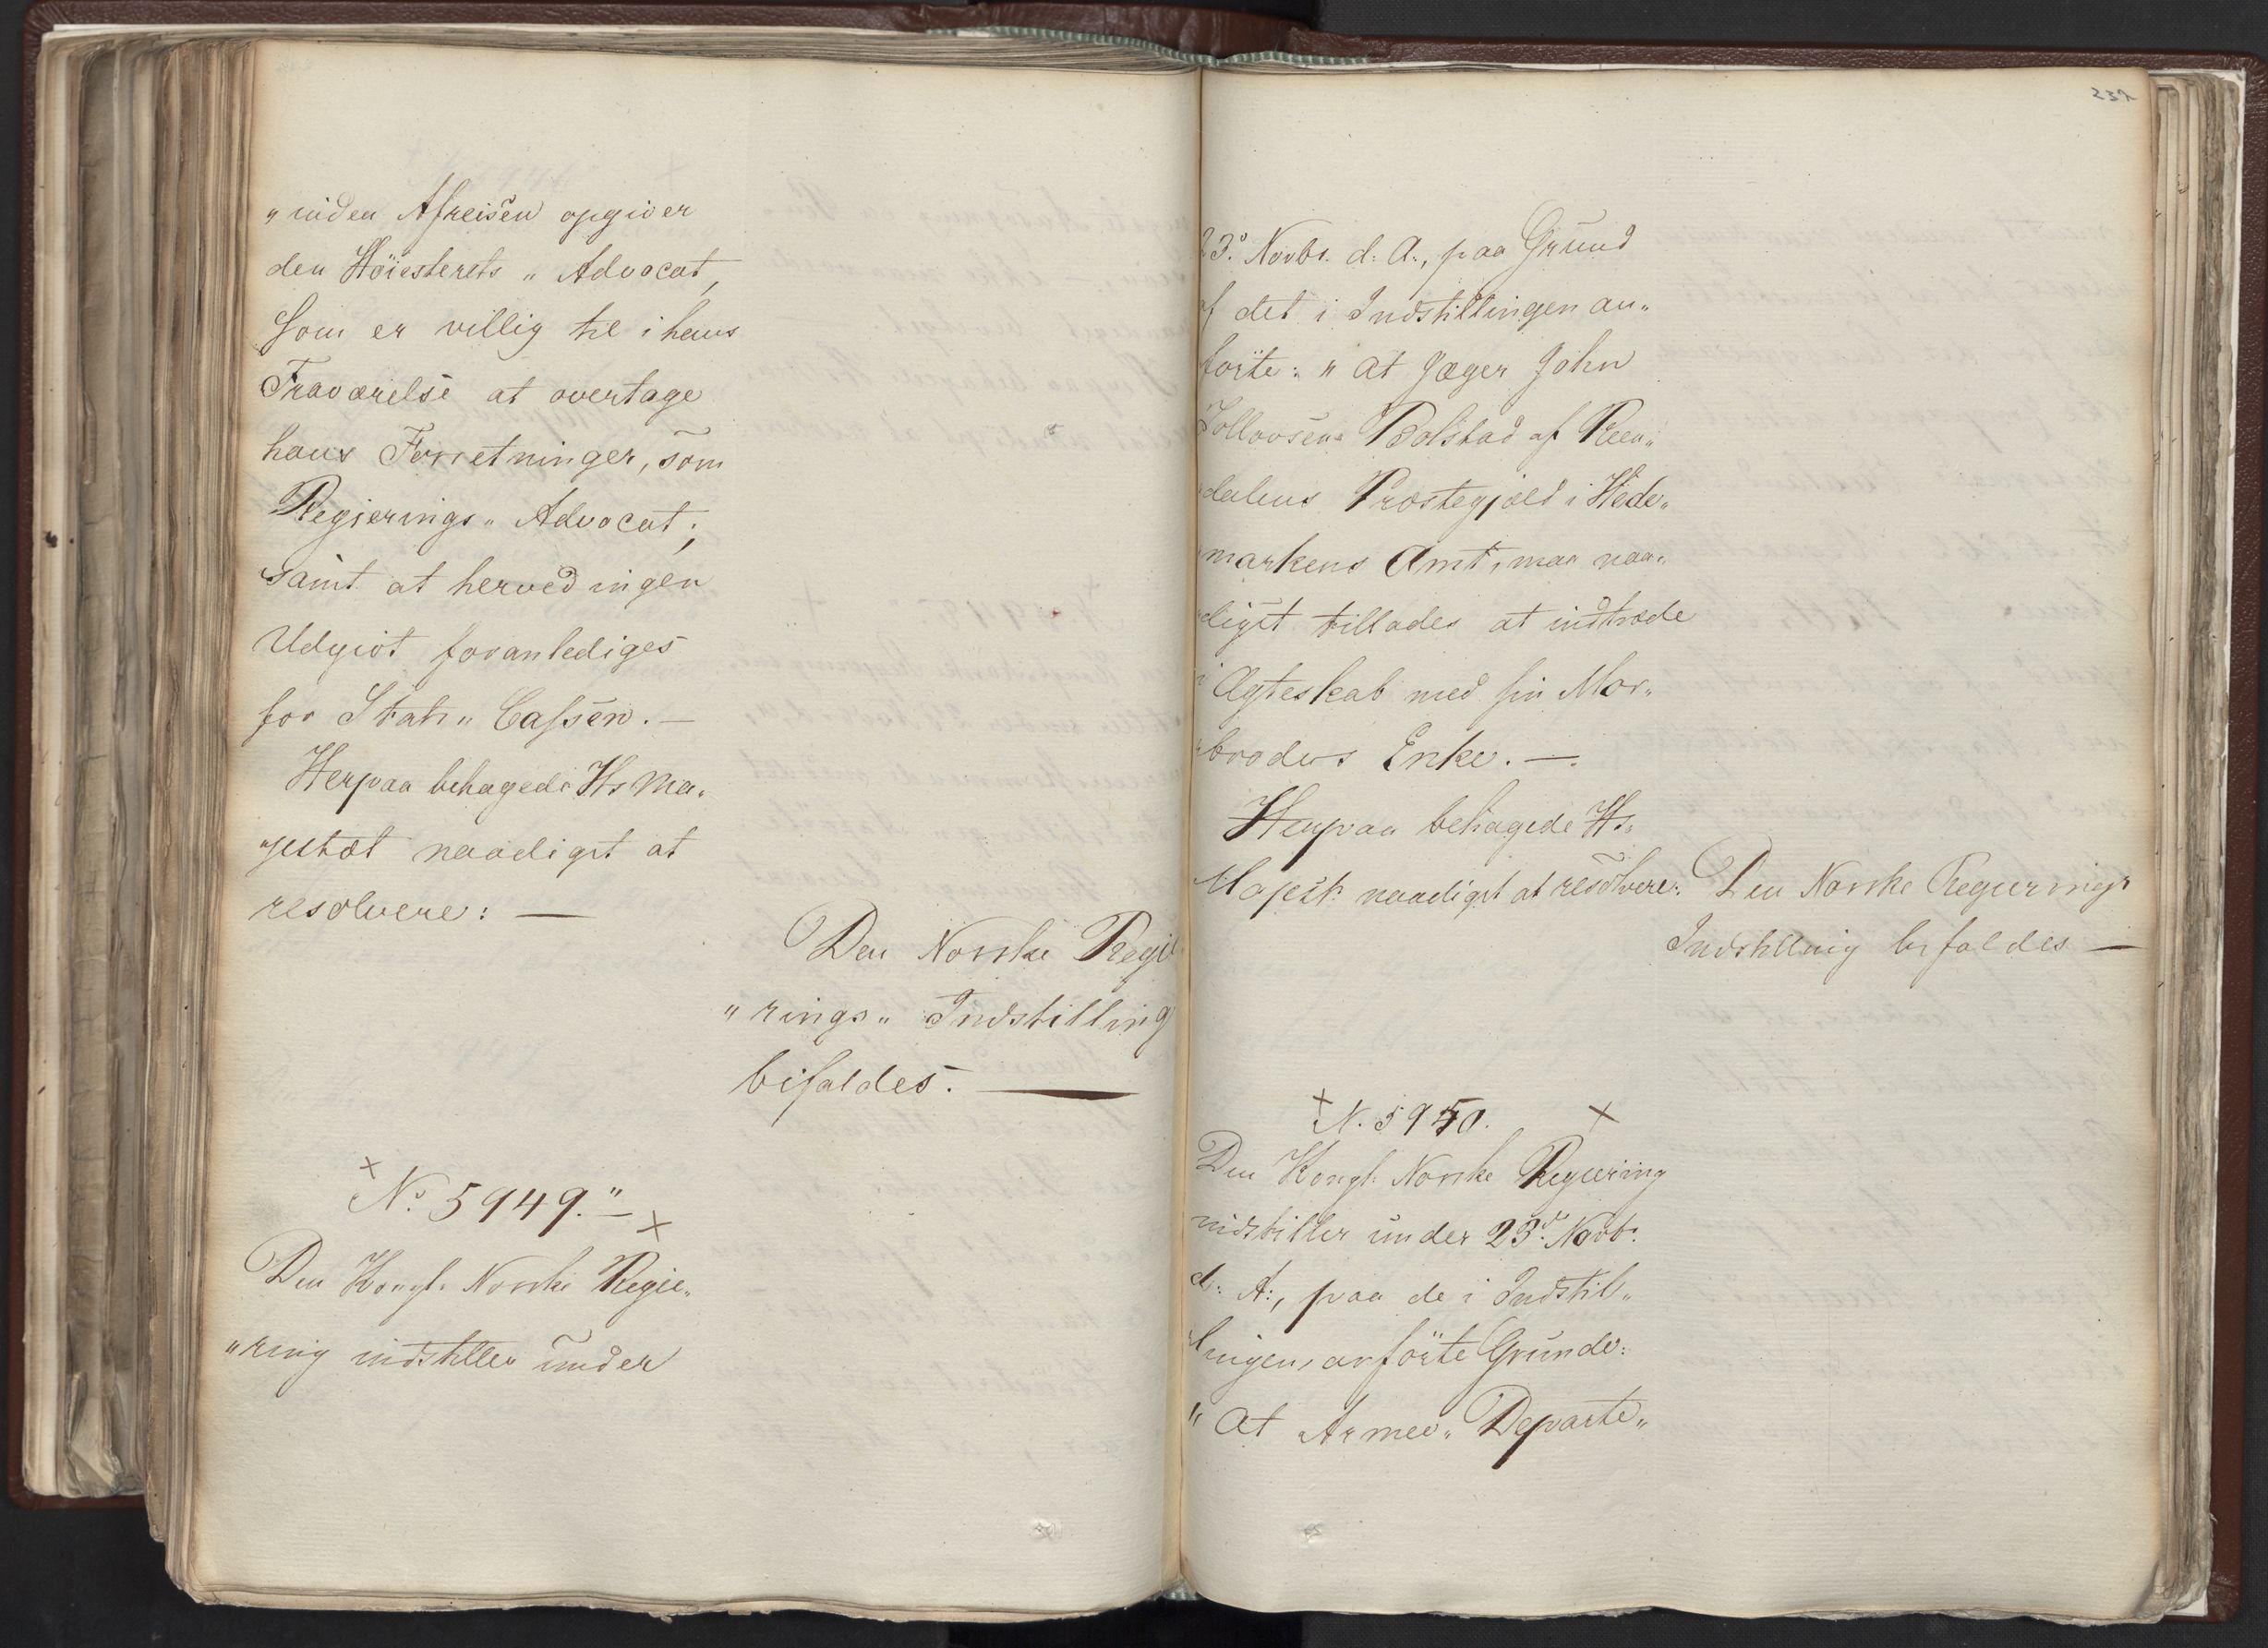 „inden Afreisen opgiver
den Höiesterets„Advocat,
som er villig til i hans
Fraværelse at overtage
hans Forretninger, som
Regjerings„Advocat;
samt at herved ingen
Udgivt foranlediges
for Stats„Cassen. —
Herpaa behagede Hs Ma„
„jestæt naadigst at
resolvere: —
Den Norske Regie
„rings„Indstilling
bifaldes. —
+ No 5949." — +
Den Kongl. Norske Regie„
„ring indstiller under
232
23d Novbr. d: A:, paa Grund
af det i Indstillingen an„
förte: „At Jæger John
Bolstad af Reen„
„dalens Præstegjæld i Hede„
„markens Amt, maa naa„
„digst tillades at indtræde
i Ægteskab med sin Mor„
„broders Enke. —
Herpaa behagede Hs.
Majest. naadigst at resolvere: Den Norske Regierings
Indstilling bifaldes —
+ N. 5950. +
Den Kongl. Norske Regiering
indstiller under 23d Novbr.
d: A:, paa de i Indstil„
„lingen, anförte Grunde:
„At Armee„Departe„